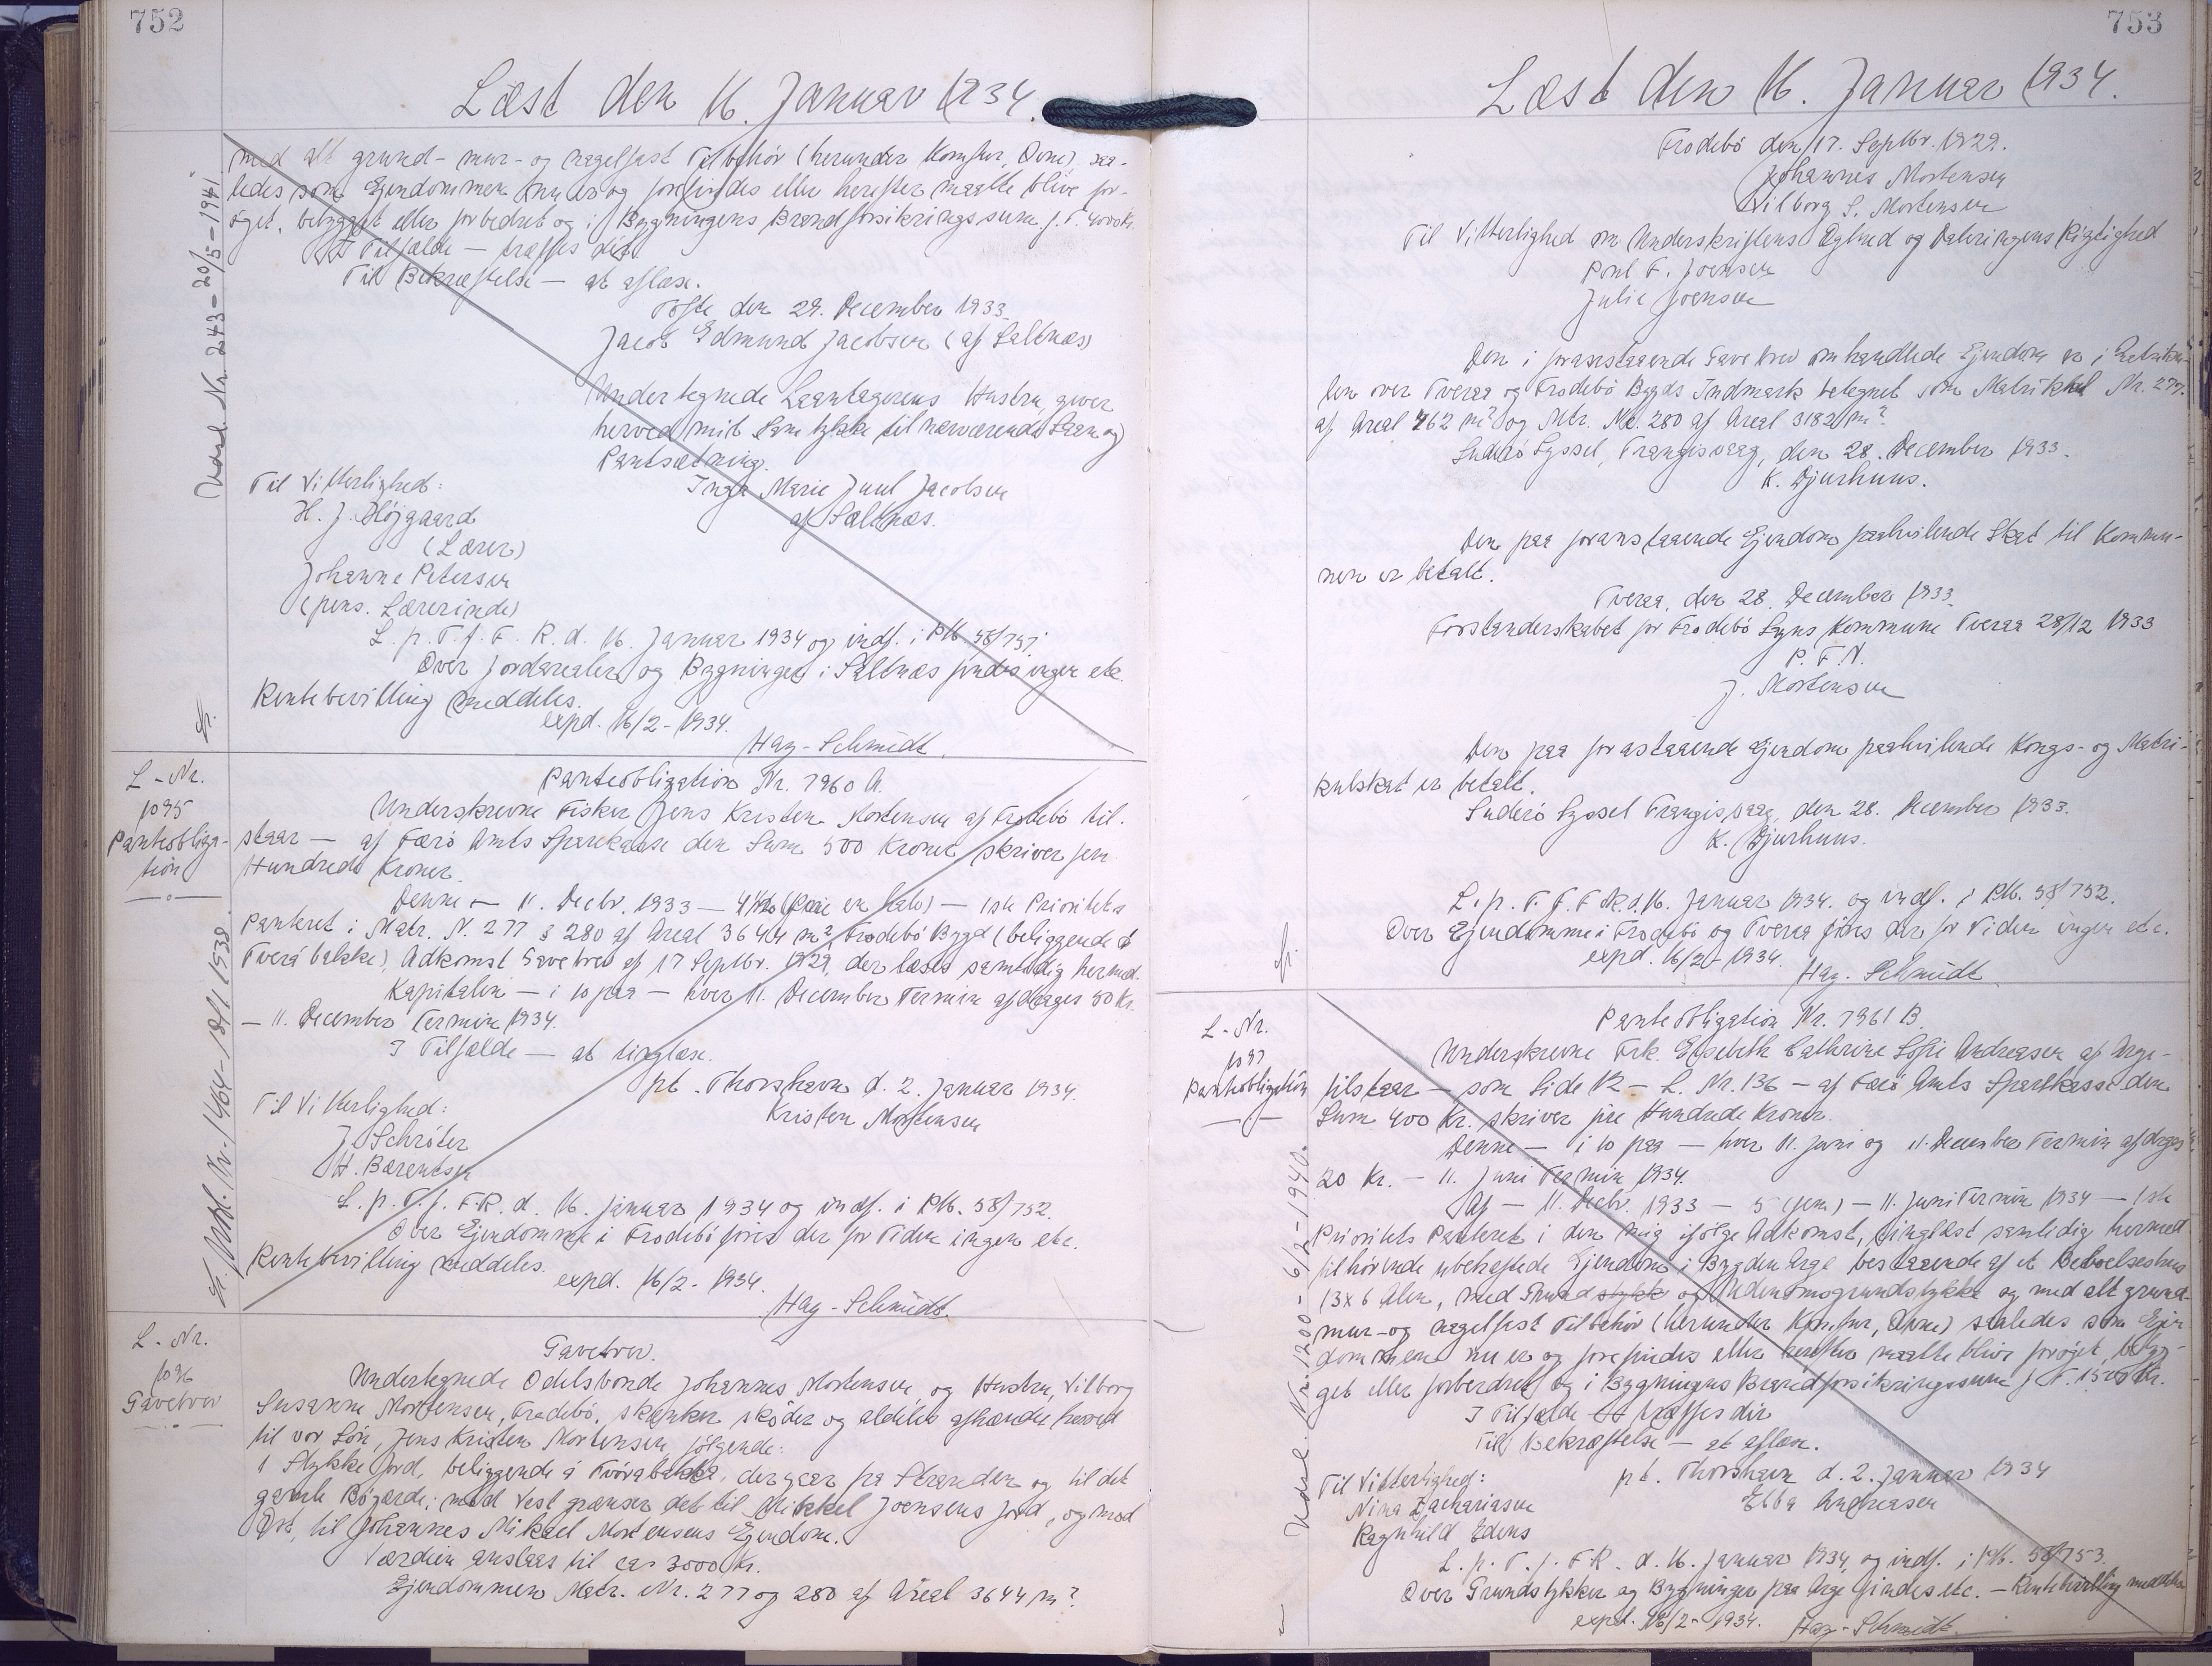 752
Læst den 16. Januar 1934.
med alt grund- mur- og nagelfast Tilbehör (herunder Komfur, Ovne) saa-
ledes som Ejendommen nu er og forefindes eller herefter maatte blive for-
öget, bebygget eller forbedret og i Bygningens Brandforsikringssum f. T. 4000 Kr.
I Tilfælde — træffes dir.
Til Bekræftelse — at aflæse.
Tofte den 29. December 1933.
Jacob Edmund Jacobsen (af Saltnæs)
Undertegnede Laantagerens Hustru, giver
herved mit Samtykke til nærværende Laan og
Pantsætning.
Til Vitterlighed:
Inga Marie Juul Jacobsen
af Saltnæs.
H. J. Höjgaard
(Lærer)
Johanne Petersen
(pens. Lærerinde)
L. p. T. f. F. R. d. 16. Januar 1934 og indf. i PM. 58/751.
Over Jordarealer og Bygninger i Saltnæs findes ingen etc.
Rentebevilling meddeles.
expd. 16/2 - 1934.
Hay-Schmidt.
Udsl. Nr. 243 - 20/5 - 1941
L - Nr.
1095
Panteobliga-
tion
Panteobligation Nr. 7960 A.
Underskrevne Fisker Jens Kristen Mortensen af Frodebö til-
staar — af Færö Amts Sparekasse den Sum 500 Kroner skriver fem
Hundrede Kroner.
Denne — 11. Decbr. 1933 — 4½% (fire en halv) — 1ste Prioritets
Panteret i Matr. N. 277 & 280 af Areal 3644 m² Frodebö Bygd (beliggende á
Tverá bakke), Adkomst Gavebrev af 17 Septbr. 1929, der læses samtidig hermed.
Kapitalen — i 10 paa — hver 11. December Termin afdrages 50 Kr.
— 11. December Termin 1934.
I Tilfælde — at tinglæse.
pt. Thorshavn d. 2. Januar 1934.
Til Vitterlighed:
Kristen Mortensen
J. Schröter
H. Bærentsen
L. p. T. f. F.R. d. 16. januar 1934 og indf. i PM. 58/752.
Over Ejendomme i Frodebö föres der for Tiden ingen etc.
Rentebevilling meddeles.
expd. 16/2 - 1934.
Hay-Schmidt.
Udsl. Nr. 1464 - 18/1 1938.
L - Nr.
1096
Gavebrev
Gavebrev.
Undertegnede Odelsbonde Johannes Mortensen, og Hustru, Vilborg
Susanne Mortensen, Frodebö, skænker sköder og aldeles afhænder herved
til vor Sön, Jens Kristen Mortensen, fölgende:
1 Stykke Jord, beliggende á Tvörabakka, der gaar fra Stranden og til det
gamle Bögærde; mod Vest grænser det til Mikkel Joensens Jord, og mod
Öst, til Johannes Mikael Mortensens Ejendom.
Værdien anslaas til ca. 3000 Kr.
Ejendommen Matr. Nr. 277 og 280 af Areal 3644 m².
753
Læst den 16. Januar 1934.
Frodebö den 17. Septbr. 1929.
Johannes Mortensen
Vilborg S. Mortensen
Til Vitterlighed om Underskriftens Ægthed og Dateringens Rigtighed
Poul F. Joensen
Julie Joensen
Den i foranstaaende Gavebrev omhandlede Ejendom er i
len over Tveraa og Frodebö Bygds Indmark betegnet som Matrikkel Nr. 277.
af Areal 462 m² og Mtr. Nr. 280 af Areal 3182 m².
Suderö Syssel, Trangisvaag, den 28. December 1933.
K. Djurhuus.
Den paa foranstaaende Ejendom paahvilende Skat til Kommu-
nen er betalt.
Tveraa, den 28. December 1933.
Forstanderskabet for Frodebö Sogns Kommune Tveraa 28/12 1933
P. F. V.
J. Mortensen
Den paa foranstaaende Ejendom paahvilende Kongs- og Matri-
kulskat er betalt.
Suderö Syssel Trangisvaag, den 28. December 1933.
K. Djurhuus.
L. p. T. f. F.R.d. 16. Januar 1934. og indf. i PM. 58/752.
Over Ejendomme i Frodebö og Tveraa föres der for Tiden ingen etc.
expd. 16/2 - 1934.
Hay-Schmidt.
L - Nr.
1097
Panteobligation
Panteobligation Nr. 7961 B.
Underskrevne Frk. Elsebeth Cathrine Sofie Andreasen af Arge-
tilstaar — som Side 12 — L. Nr. 136 — af Færö Amts Sparekasse den
Sum 400 Kr. skriver fire Hundrede Kroner.
Denne — i 10 paa — hver 11. Juni og 11. December Termin afdrages
20 Kr. — 11. Juni Termin 1934.
Af — 11. Decbr. 1933 — 5 (fem) — 11. Juni Termin 1934 — 1ste
Prioritets Panteret i den mig ifölge Adkomst, tinglæst samtidig hermed
tilhörende ubehæftede Ejendom i Bygden Arge bestaaende af et Beboelseshus
13x6 Alen, med Grundstykk og Udenomsgrundstykke og med alt grund-
mur- og nagelfast Tilbehör (herunder Komfur, Ovne) saaledes som Ejen-
dommene nu er og forefindes eller herefter maatte blive foröget, bebyg-
get eller forbedret og i Bygningens Brandforsikringssum f. T. 1500 Kr.
I Tilfælde træffes dir
Til Bekræftelse — at aflæse.
Til Vitterlighed:
pt. Thorshavn d. 2. Januar 1934
Ebba Andreasen
Nina Zachariasen
Ragnhild Edens
L. p. T. f. F.R. d. 16. Januar 1934, og indf. i PM. 58/753.
Over Grundstykker og Bygninger paa Arge findes etc. — Rentebevilling meddeles
expd. 16/2 - 1934.
Hay-Schmidt.
Udsl. Nr. 1200 - 6/2 - 1940.